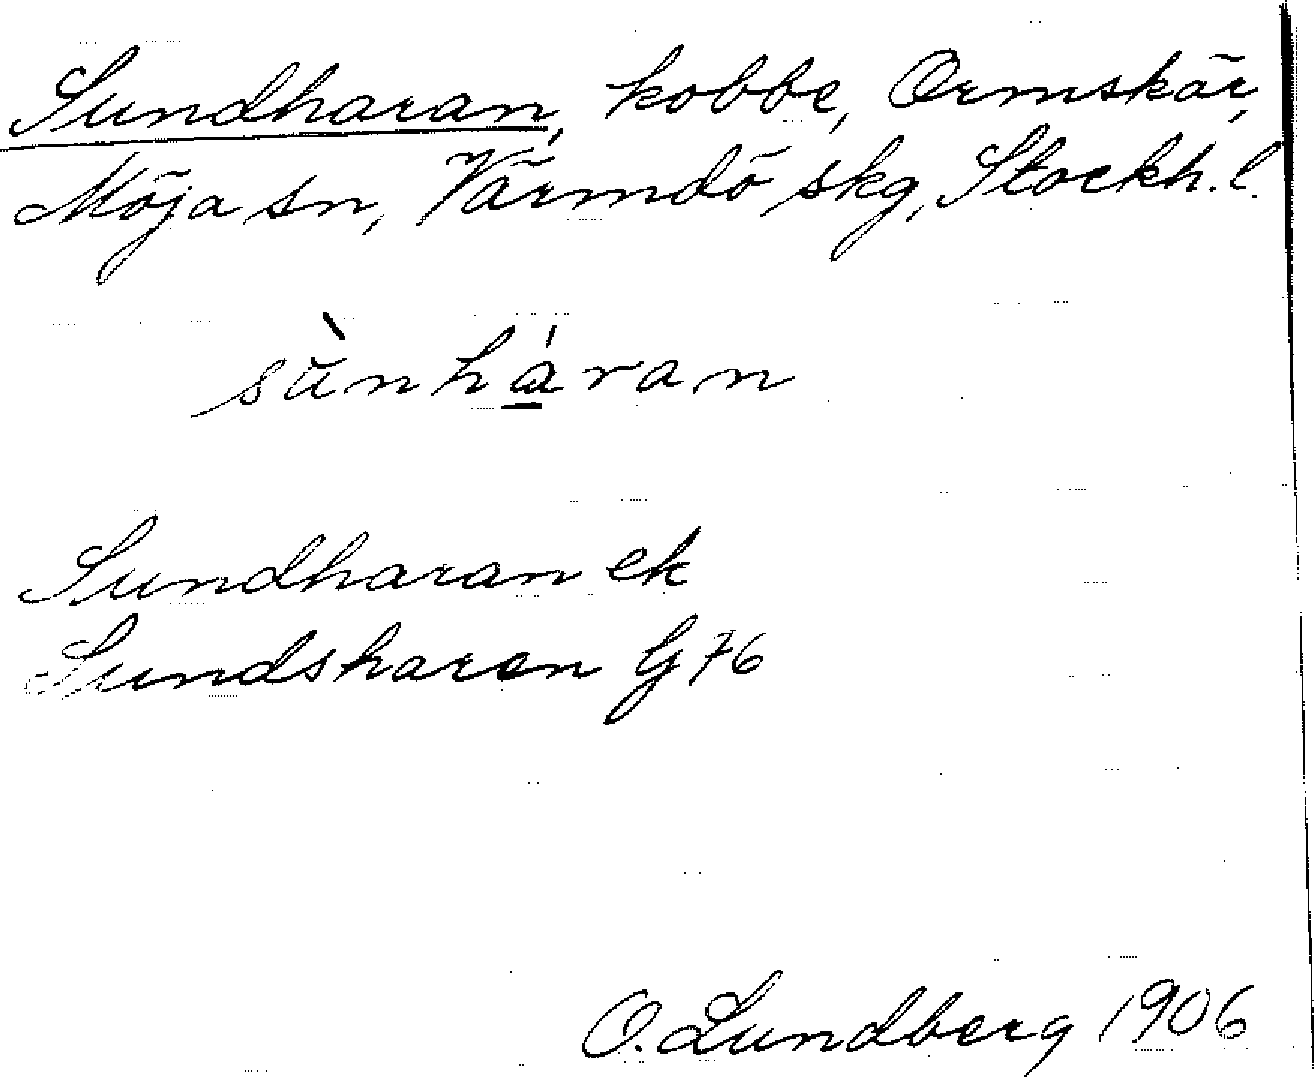 Sundharan, kobbe, Ormskär,
Möja sn, Värmdö skg, Stockh. l.
sùnháran
Sundharan ek
Sundsharen G 76
O. Lundberg 1906